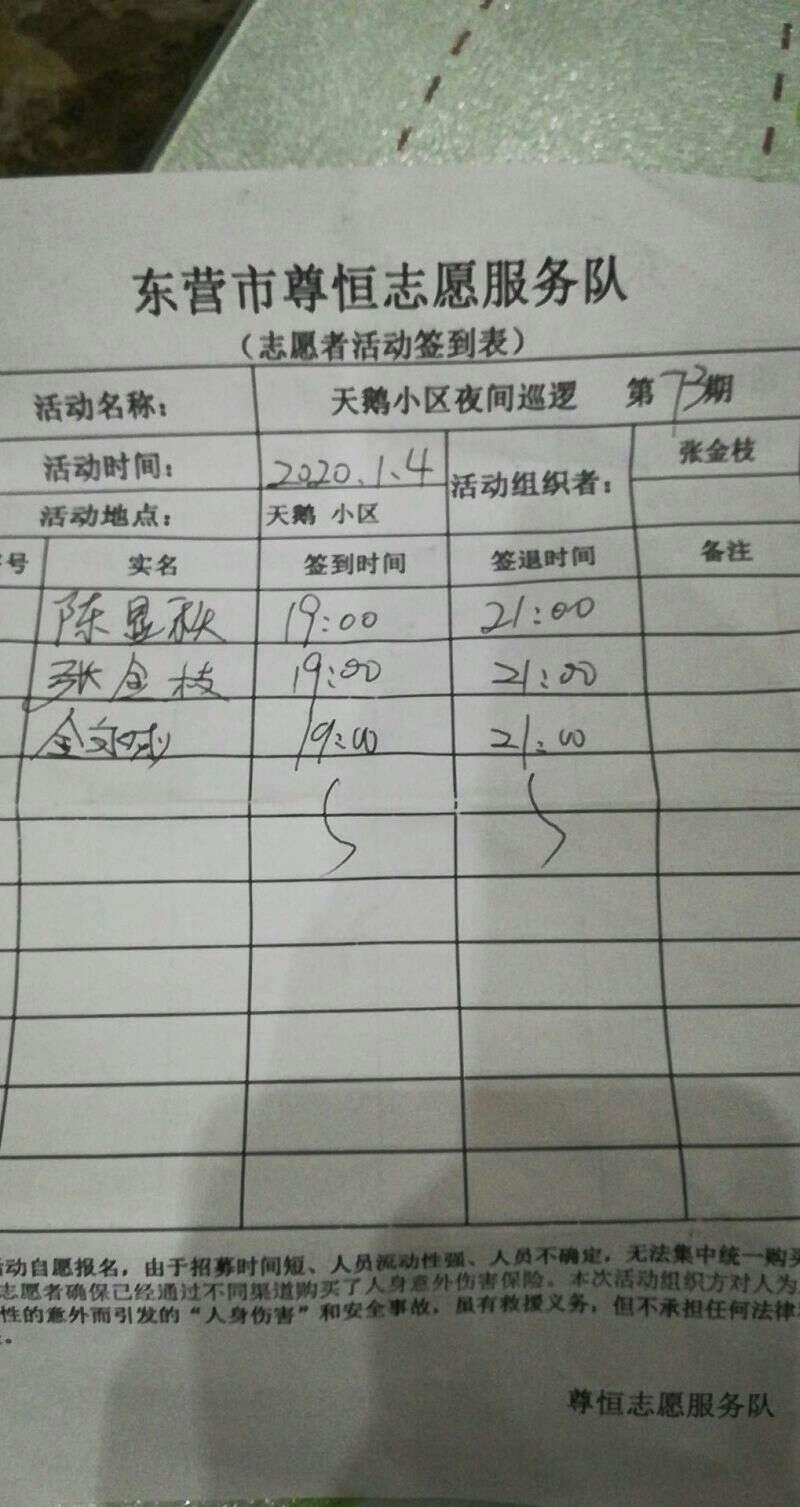 东营市尊恒志愿服务队
（志愿者活动签到表）
活动名称： 天鹅小区夜间巡逻 第73期
活动时间： 2020.1.4 活动组织者： 张金枝
活动地点： 天鹅 小区
号 实名 签到时间 签退时间 备注
陈显秋 19:00 21:00
张金枝 19:00 21:00
19:00 21:00
活动自愿报名，由于招募时间短、人员流动性强、人员不确定，无法集中统一购买
志愿者确保已经通过不同渠道购买了人身意外伤害保险。本次活动组织方对人为
性的意外而引发的“人身伤害”和安全事故，虽有救援义务，但不承担任何法律
尊恒志愿服务队